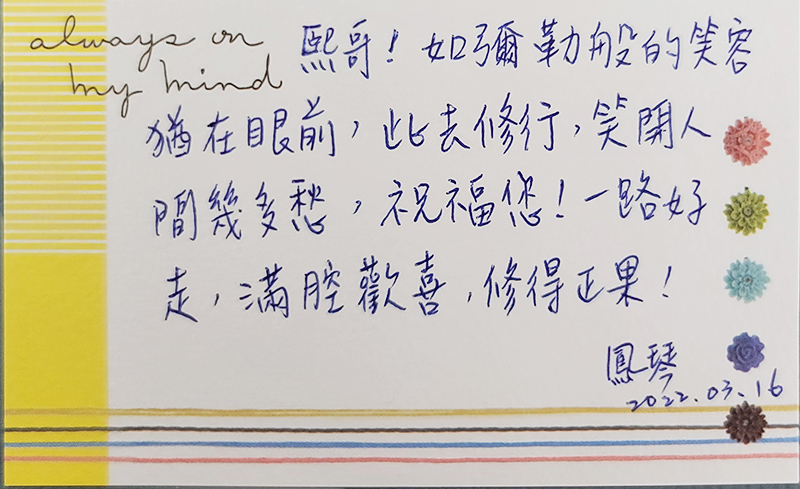 always on
my mind
熙哥！如彌勒般的笑容
猶在眼前，此去修行，笑開人
間幾多愁，祝福您！一路好
走，滿腔歡喜，修得正果！
鳳琴
2022.03.16